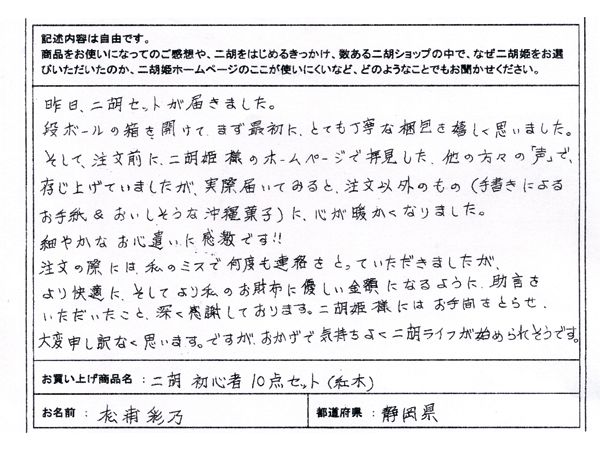 記述内容は自由です。
商品をお使いになってのご感想や、二胡をはじめるきっかけ、数ある二胡ショップの中で、なぜ二胡姫をお選
びいただいたのか、二胡姫ホームページのここが使いにくいなど、どのようなことでもお聞かせください。
昨日、二胡セットが届きました。
段ボールの箱を開けて、まず最初に、とても丁寧な梱包を嬉しく思いました。
そして、注文前に、二胡姫様のホームページで拝見した、他の方々の「声」で、
存じ上げていましたが、実際届いてみると、注文以外のもの(手書きによる
お手紙&おいしそうな沖縄菓子)に、心が暖かくなりました。
細やかなお心遣いに感激です!!
注文の際には、私のミスで何度も連絡をとっていただきましたが、
より快適に、そしてより私のお財布に優しい金額になるように、助言を
いただいたこと、深く感謝しております。二胡姫様にはお手間をとらせ、
大変申し訳なく思います。ですが、おかげで気持ちよく二胡ライフが始められそうです。
お買い上げ商品名:二胡 初心者 10点セット(紅木)
お名前:松浦彩乃
都道府県:静岡県